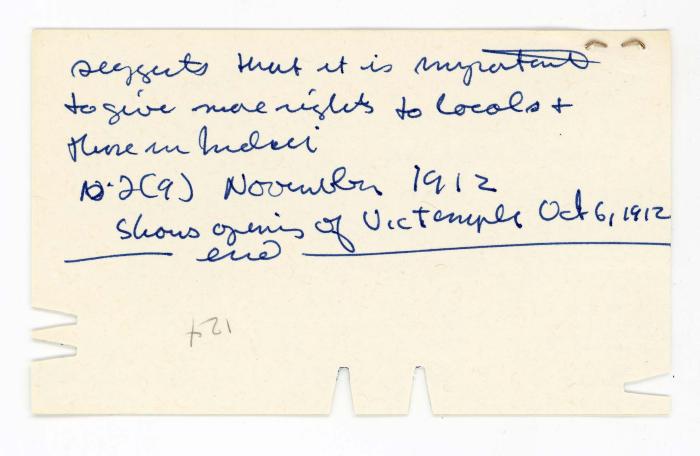 suggests that it is important
to give more rights to locals +
those in India
No. 2(9) November 1912
shows opening of Vic temple Oct 6, 1912
end